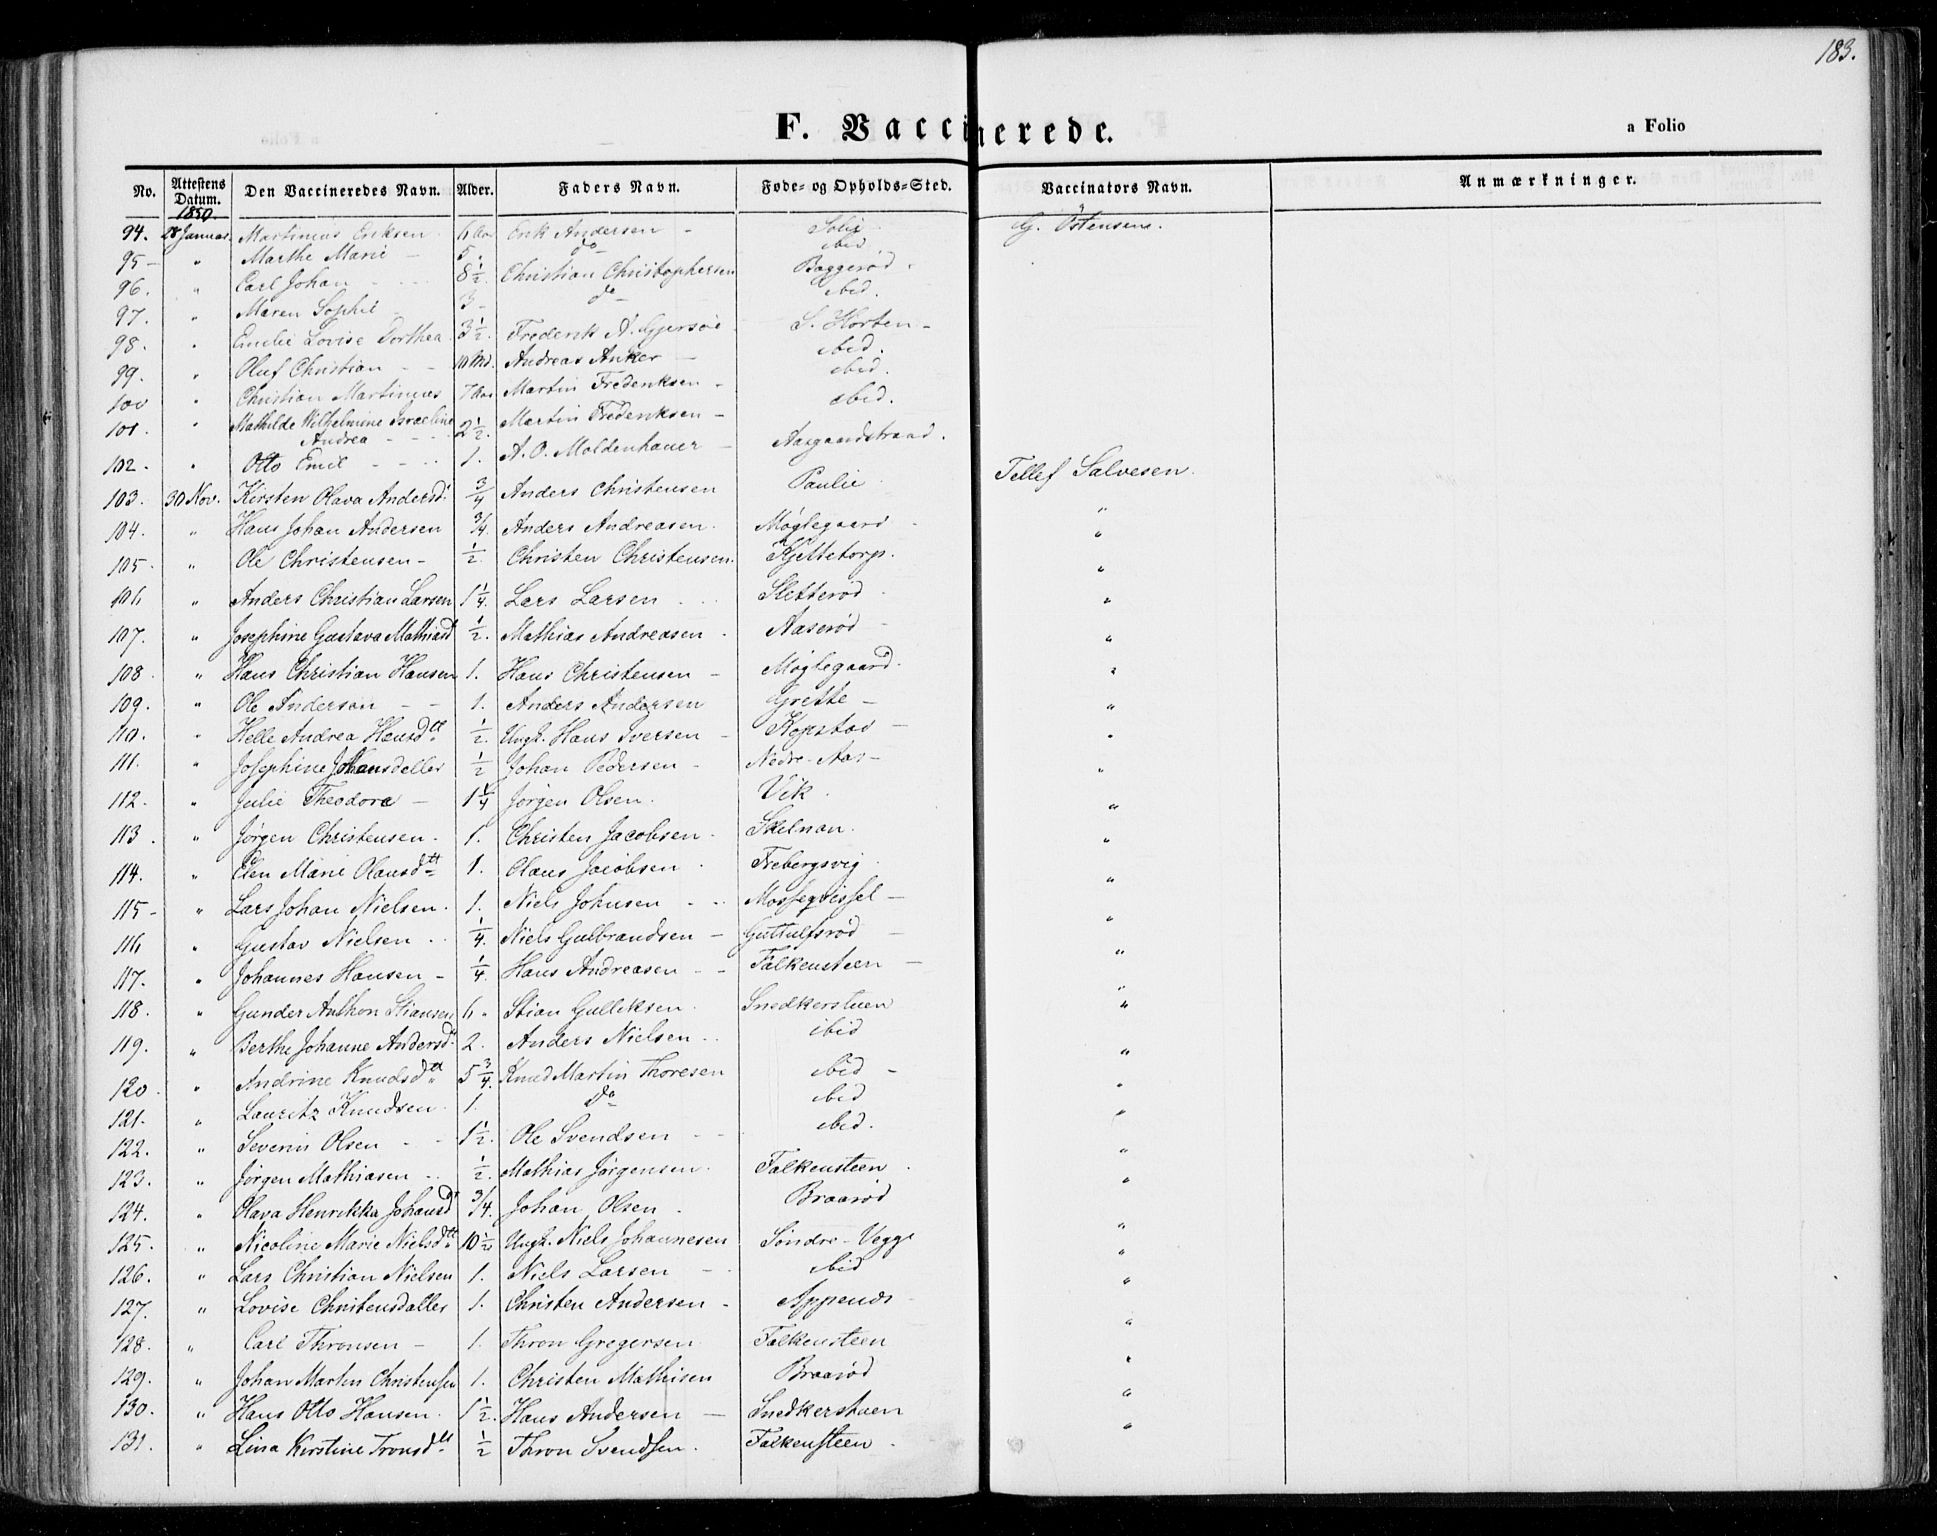 183.
F. Vaccinerede.
a Folio
No. Attestens Datum. Den Vaccineredes Navn. Alder. Faders Navn. Føde- og Opholds-Sted. Vaccinators Navn. Anmærkninger.
1850
94. 28 Januar. Martinius Eriksen 6 Aar Erik Andersen - Solie G. Östensen.
95 - " Marthe Marie - 5 " do ibid
96. " Carl Johan - - - 8 1/2. Christian Christophersen Baggerød.
97. " Maren Sophie 3 - do ibid.
98. " Emilie Lovise Dorthea 3 1/2. Frederik A. Gjersøe S. Horten -
99. " Oluf Christian - - 10 Md. Andreas Anker - ibid.
100 " Christian Martinius 7 Aar Martin Frederiksen - ibid.
101. " Mathilde Wilhelmine Israeline Andrea - - - 2 1/2. Martin Frederiksen - ibid.
102. " Otto Emil - - - 1. A. O. Moldenhauer - Aasgaardstrand.
103. 30 Nov. Kirsten Olava Andersd: 3/4 Anders Christensen Paulie Tellef Salvesen.
104. " Hans Johan Andersen 3/4. Anders Andreasen. Møglegaard - "
105. " Ole Christensen - 1/2. Christen Christensen. Kjelletorp. "
106 " Anders Christian Larsen 1 1/4. Lars Larsen Sletterød "
107. " Josephine Gustava Mathiasd 1/2. Mathias Andreasen. Aaserød - "
108 " Hans Christian Hansen 1. Hans Christensen - Møglegaard. "
109. " Ole Andersen - - 1. Anders Andersen Grette - "
110. " Helle Andrea Hansdtt 1/2. Ungk. Hans Iversen - Kopstad - "
111. " Josephine Johansdatter 1/2 Johan Pedersen - Nedre-Aas - "
112. " Julie Theodora - 1 1/4 Jørgen Olsen. Vik. "
113. " Jørgen Christensen. 1. Christen Jacobsen. Skelnan. "
114. " Elen Marie Olausdtt 1. Olaus Jacobsen. Frebergsvig "
115 - " Lars Johan Nielsen. 1. Niels Johnsen - - Mossegvissel - "
116 " Gustav Nielsen . . 1/4. Niels Gulbrandsen - Guttulfsrød - "
117. " Johannes Hansen - 1/4. Hans Andreasen - - Falkensteen - "
118. " Gunder Anthon Stiansen 6 " Stian Gulleksen. Snedkerstuen "
119. " Berthe Johanne Andersd. 2. Anders Nielsen . . ibid "
120. " Andrine Knudsdtt 5 3/4. Knud Martin Thoresen ibid - "
121. " Lauritz Knudsen. 1. do ibid "
122. " Severin Olsen - - 1 1/2. Ole Svendsen - - ibid. "
123. " Jørgen Mathiasen . . 1/2. Mathias Jørgensen. Falkensteen. "
124. " Olava Henrikka Johansd 3/4. Johan Olsen. Braarød "
125. " Nicoline Marie Nielsdtt 10 1/2 Ungk. Niels Johannesen Søndre-Vegge "
126. " Lars Christian Nielsen 1. Niels Larsen - ibid "
127. " Lovise Christensdatter 1. Christen Andersen - Appenæs - "
128. " Carl Thronsen - 1. Thron Gregersen Falkensteen "
129. " Johan Martin Christensen 1. Christen Mathisen Braarød "
130. " Hans Otto Hansen. 1 1/2. Hans Andersen - Snedkerstuen "
131. " Lina Kirstine Tronsdtt 1/2 Thron Svendsen. Falkensteen. "